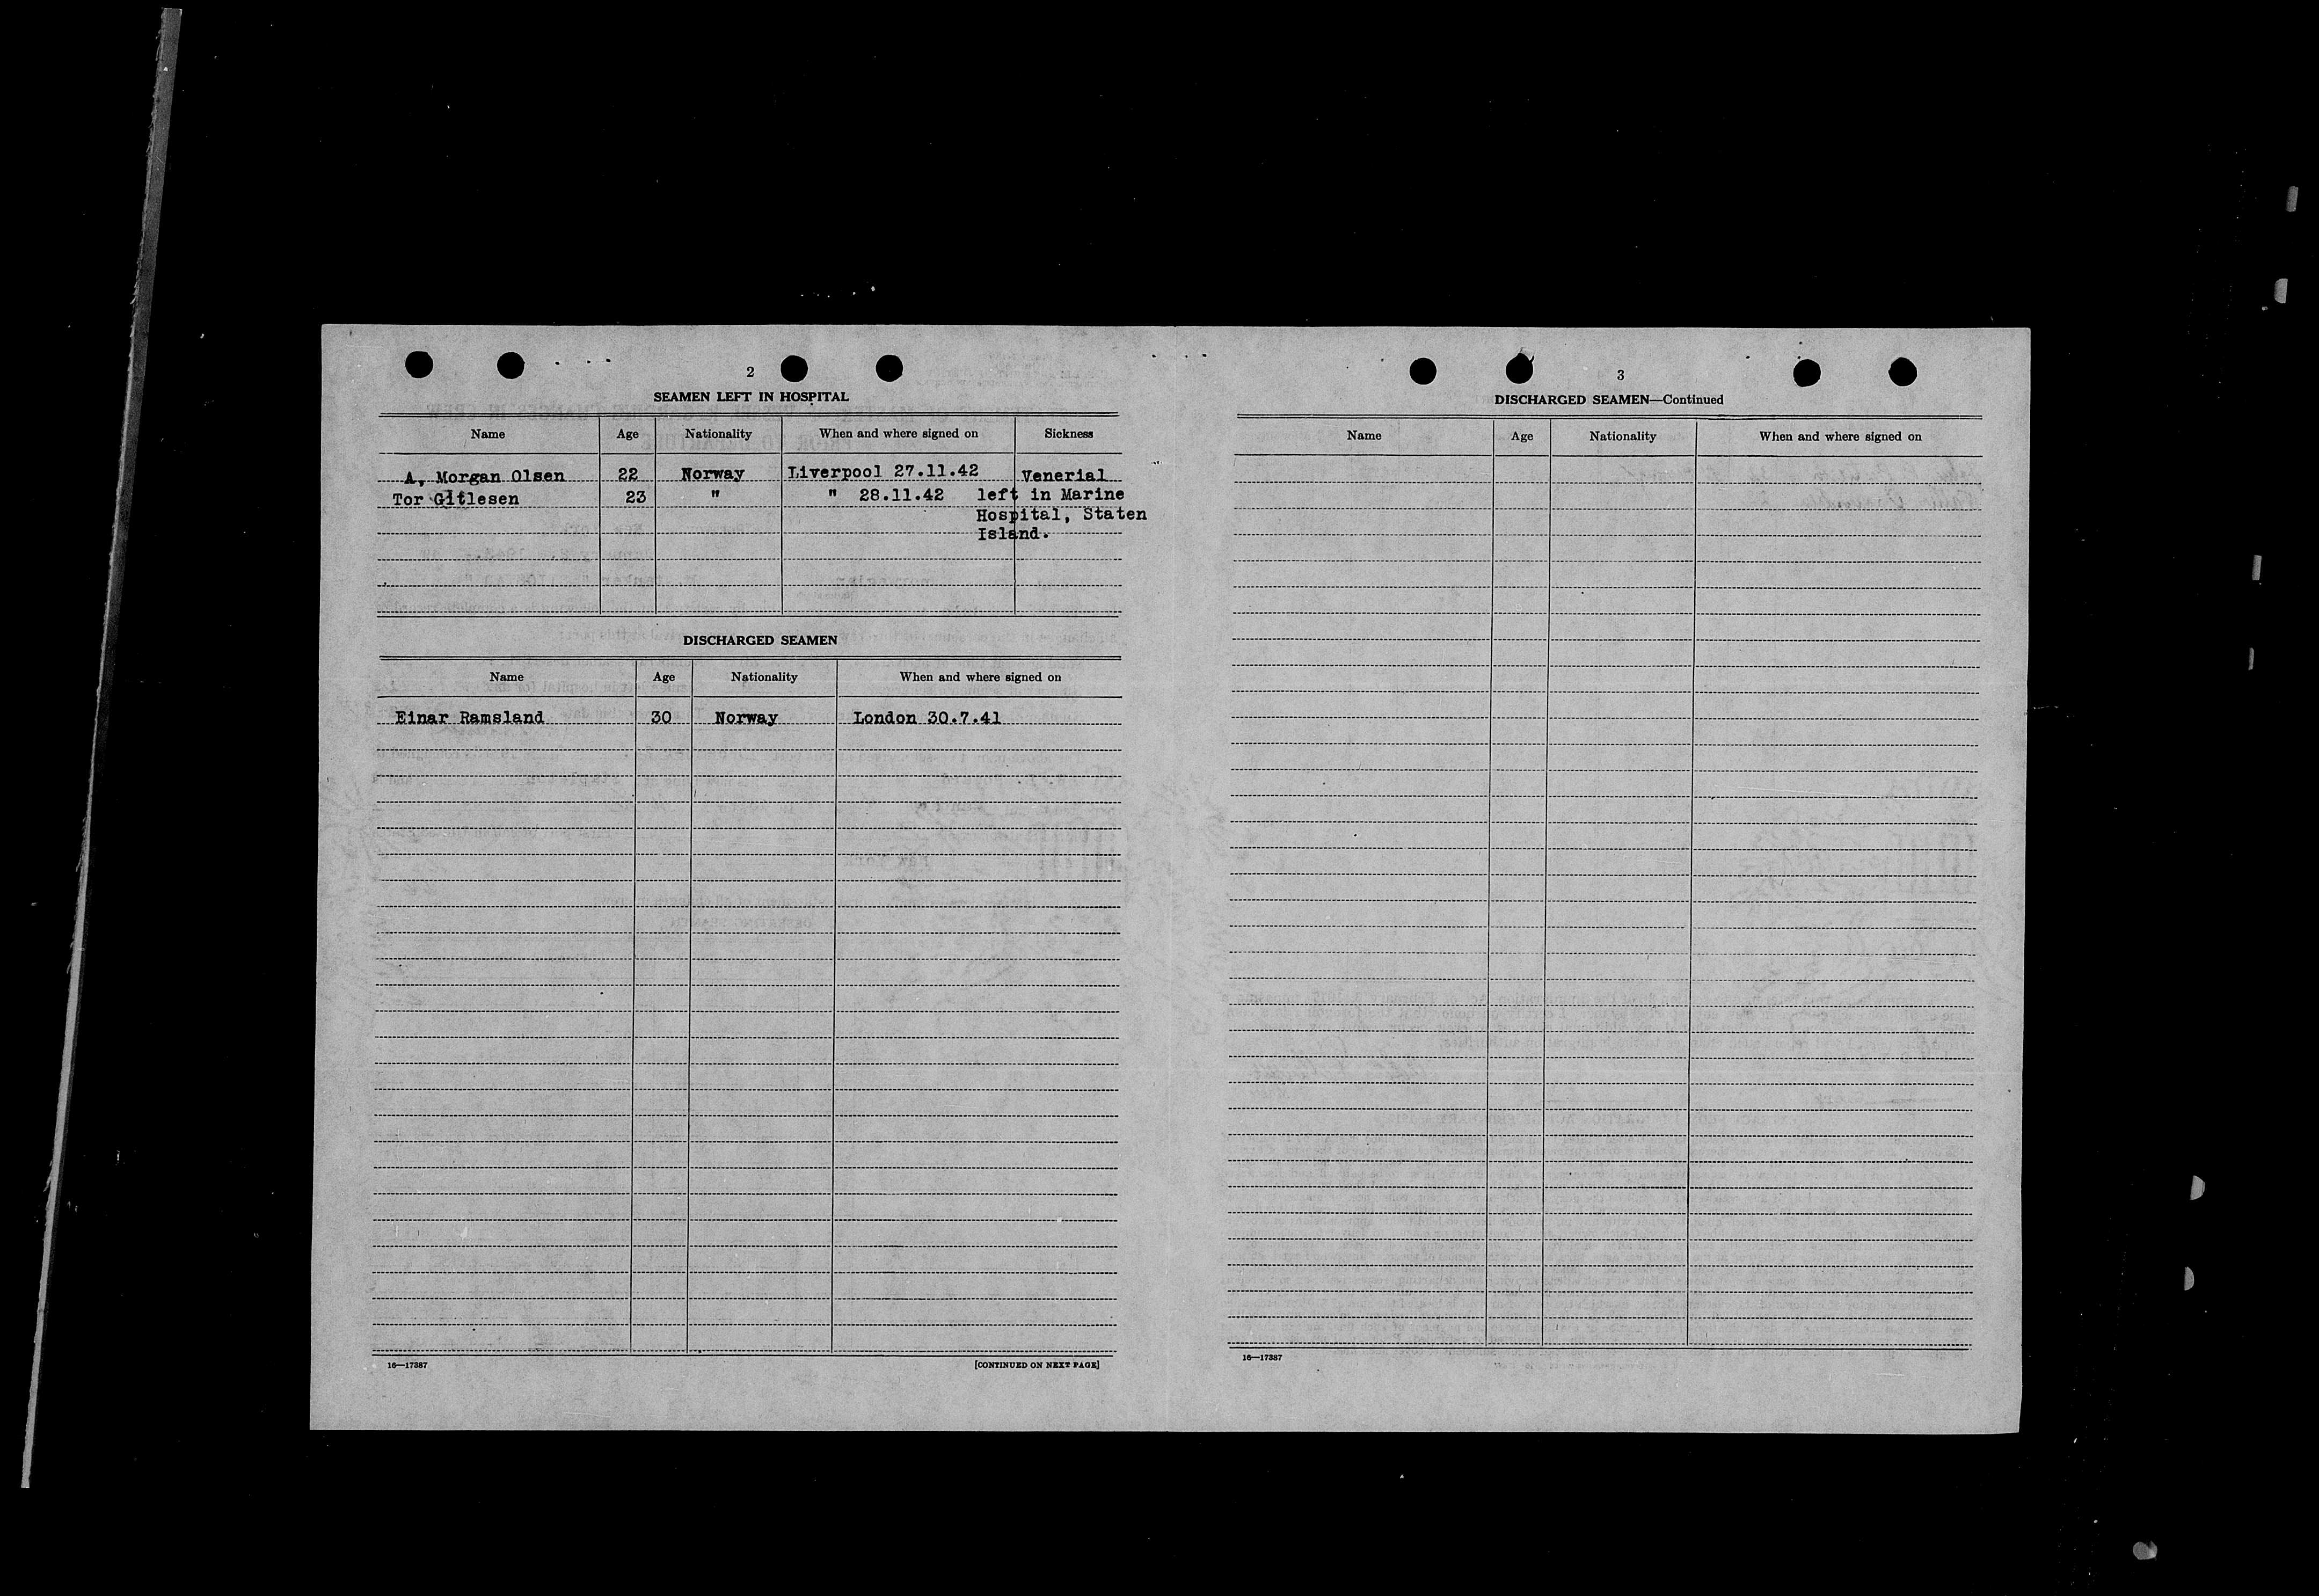 2
SEAMEN LEFT IN HOSPITAL
Name Age Nationality When and where signed on Sickness
A, Morgan Olsen 22 Norway Liverpool 27.11.42 Venerial
Tor Gitlesen 23 " " 28.11.42 left in Marine
Hospital, Staten
Island.
DISCHARGED SEAMEN
Name Age Nationality When and where signed on
Einar Ramsland 30 Norway London 30.7.41
16—17387 [CONTINUED ON NEXT PAGE]
3
DISCHARGED SEAMEN—Continued
Name Age Nationality When and where signed on
16—17387